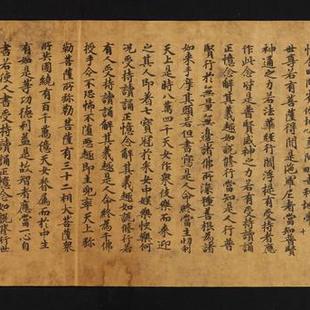 世尊若有菩薩得聞是陁羅尼者當知普賢
神通之力若法華經行閻浮提有受持者應
作此念皆是普賢威神之力若有受持讀誦
正憶念解其義趣如說修行當知是人行普
賢行於無量無邊諸佛所深種善根為諸
如來手摩其頭若但書寫是人命終當生忉利
天上是時八萬四千天女作衆伎樂而來迎
之其人即著七寶冠於采女中娛樂快樂何
況受持讀誦正憶念解其義趣如說修行若
有人受持讀誦解其義趣是人命終為千佛
授手令不恐怖不墮惡趣即往兜率天上弥
勒菩薩所弥勒菩薩有三十二相大菩薩衆
所共圍繞有百千萬億天女眷屬而於中生
有如是等功德利益是故智者應當一心自
書若使人書受持讀誦正憶念如說修行世